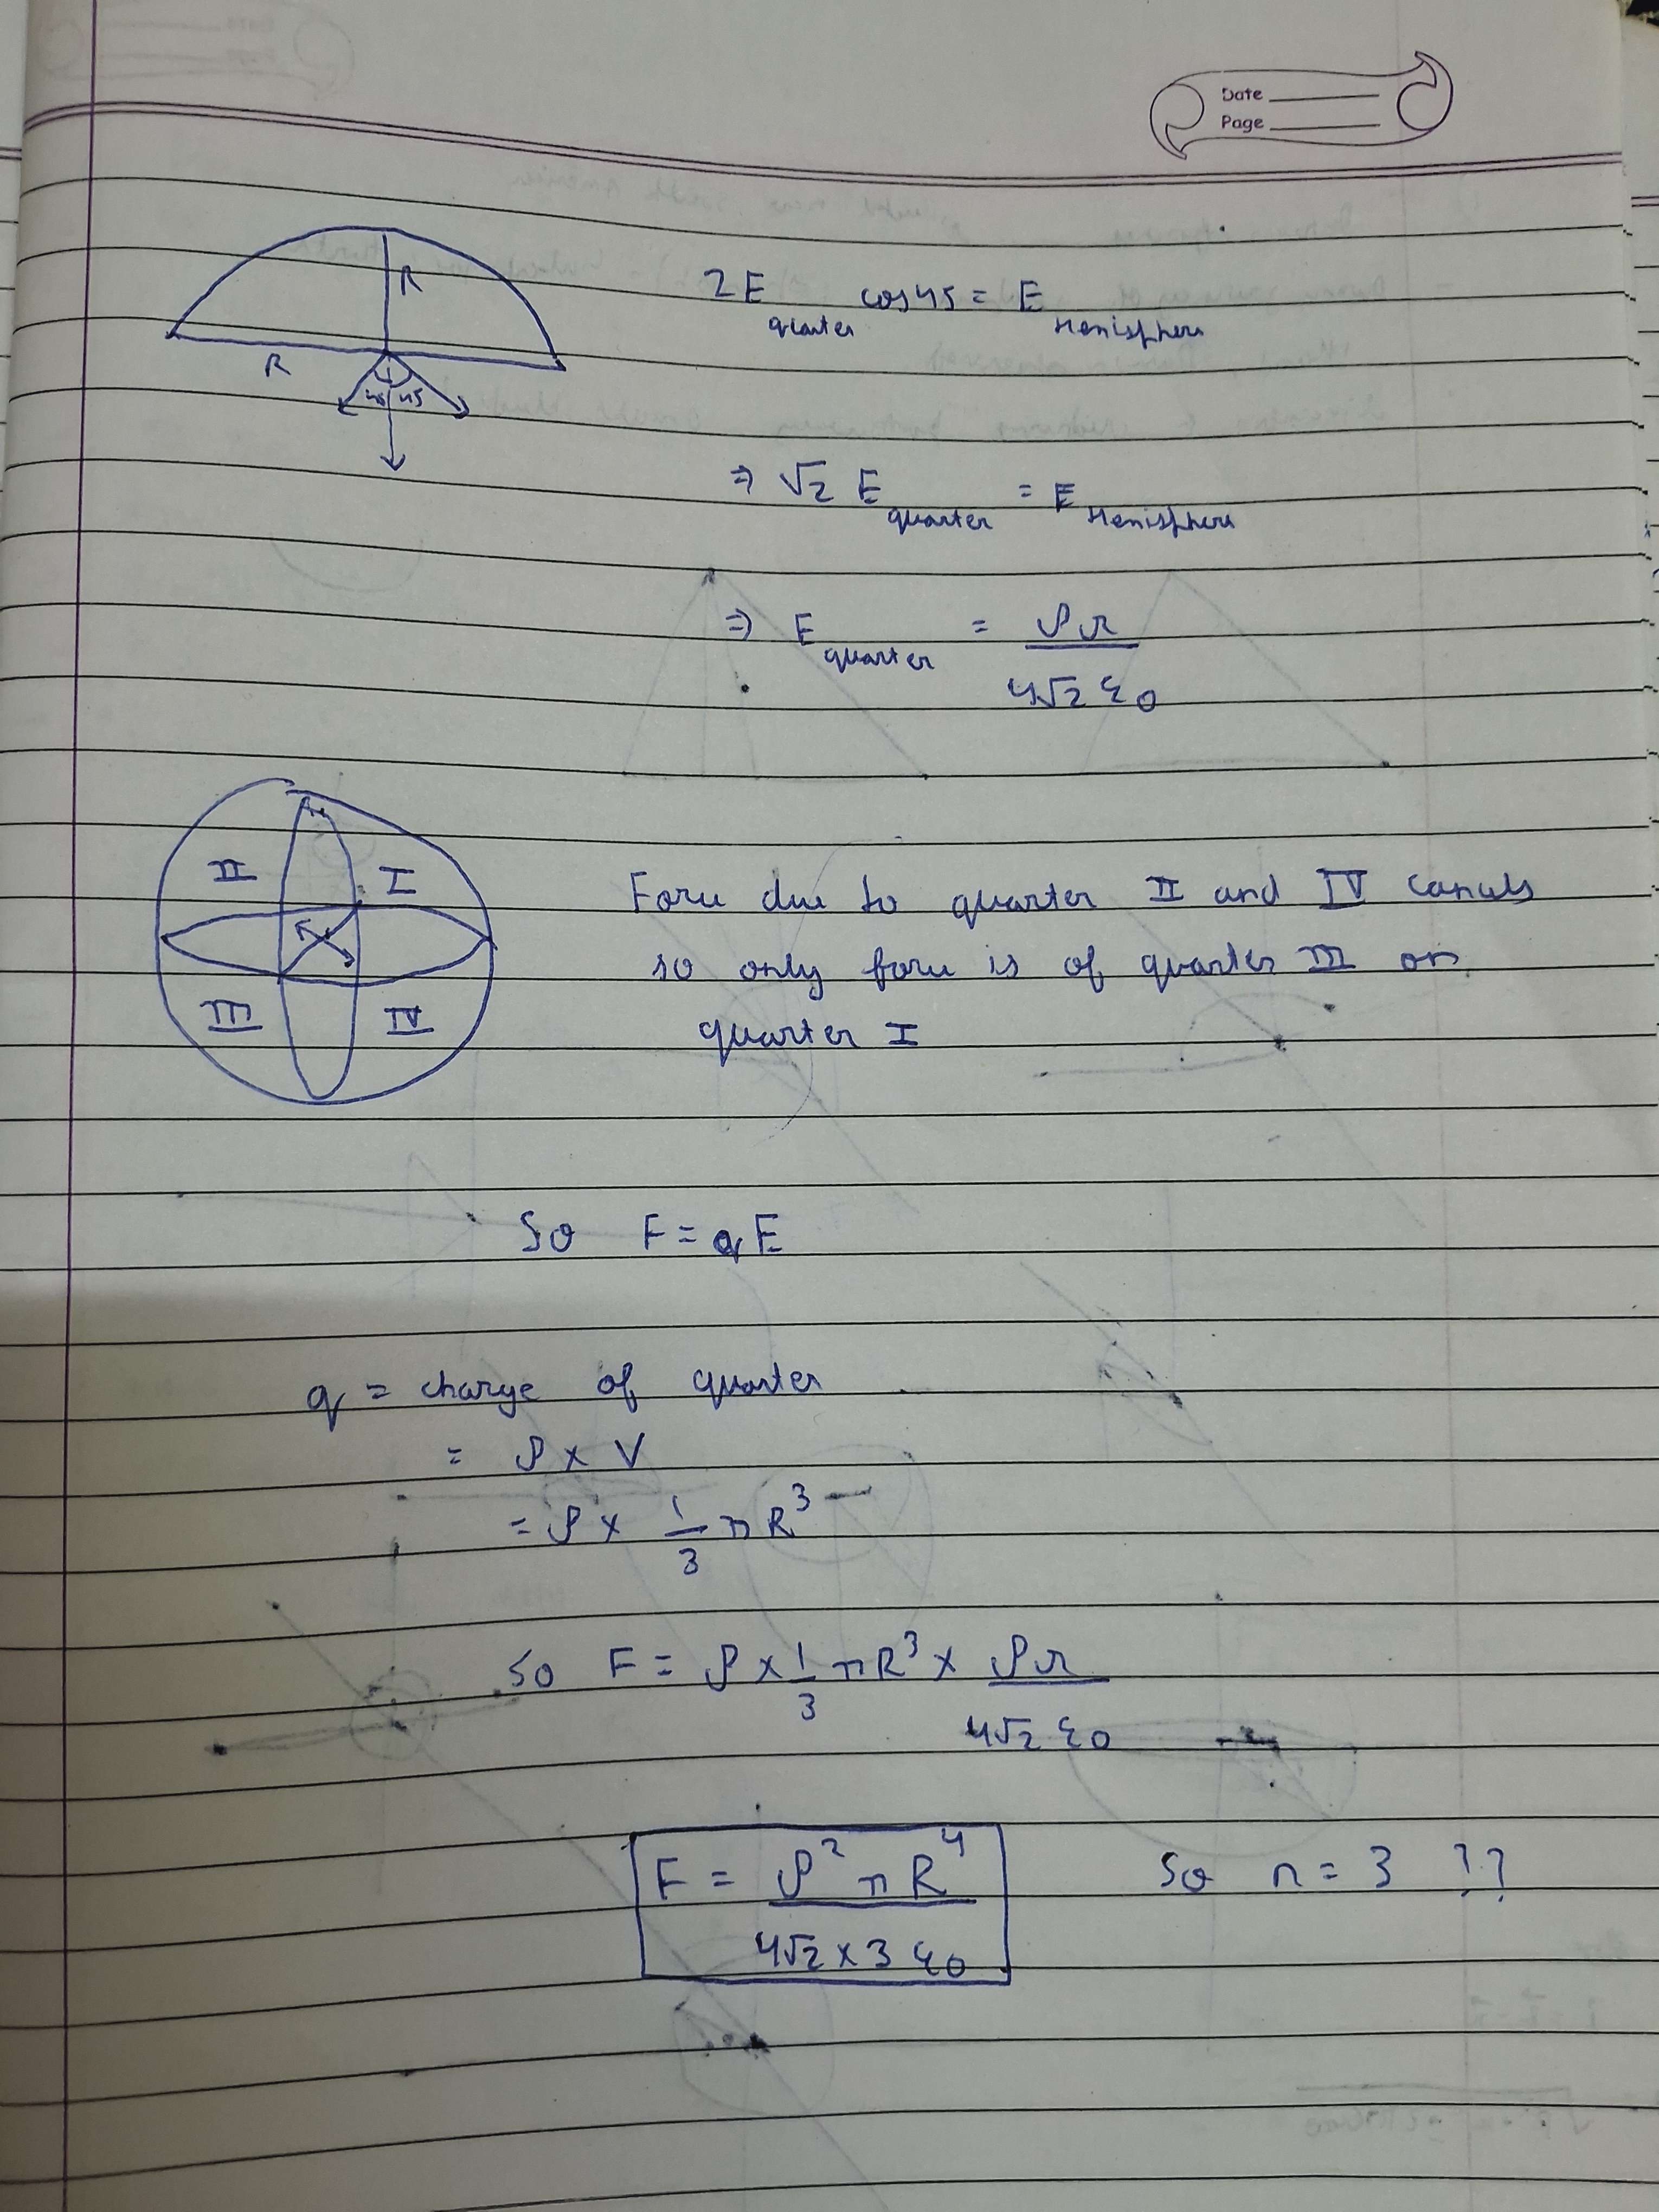 Date
Page
R
R
45 45
2E quarter cos 45 = E Hemisphere
⇒ √2 E quarter = E Hemisphere
⇒ E quarter = ρr / 4√2 ε0
II I
III IV
Force due to quarter II and IV cancels
so only force is of quarter III on
quarter I
So F = qE
q = charge of quarter
= ρ × V
= ρ × 1/3 π R³
So F = ρ × 1/3 πR³ × ρr / 4√2 ε0
F = ρ² π R⁴ / 4√2 × 3 ε0 So n = 3 ??